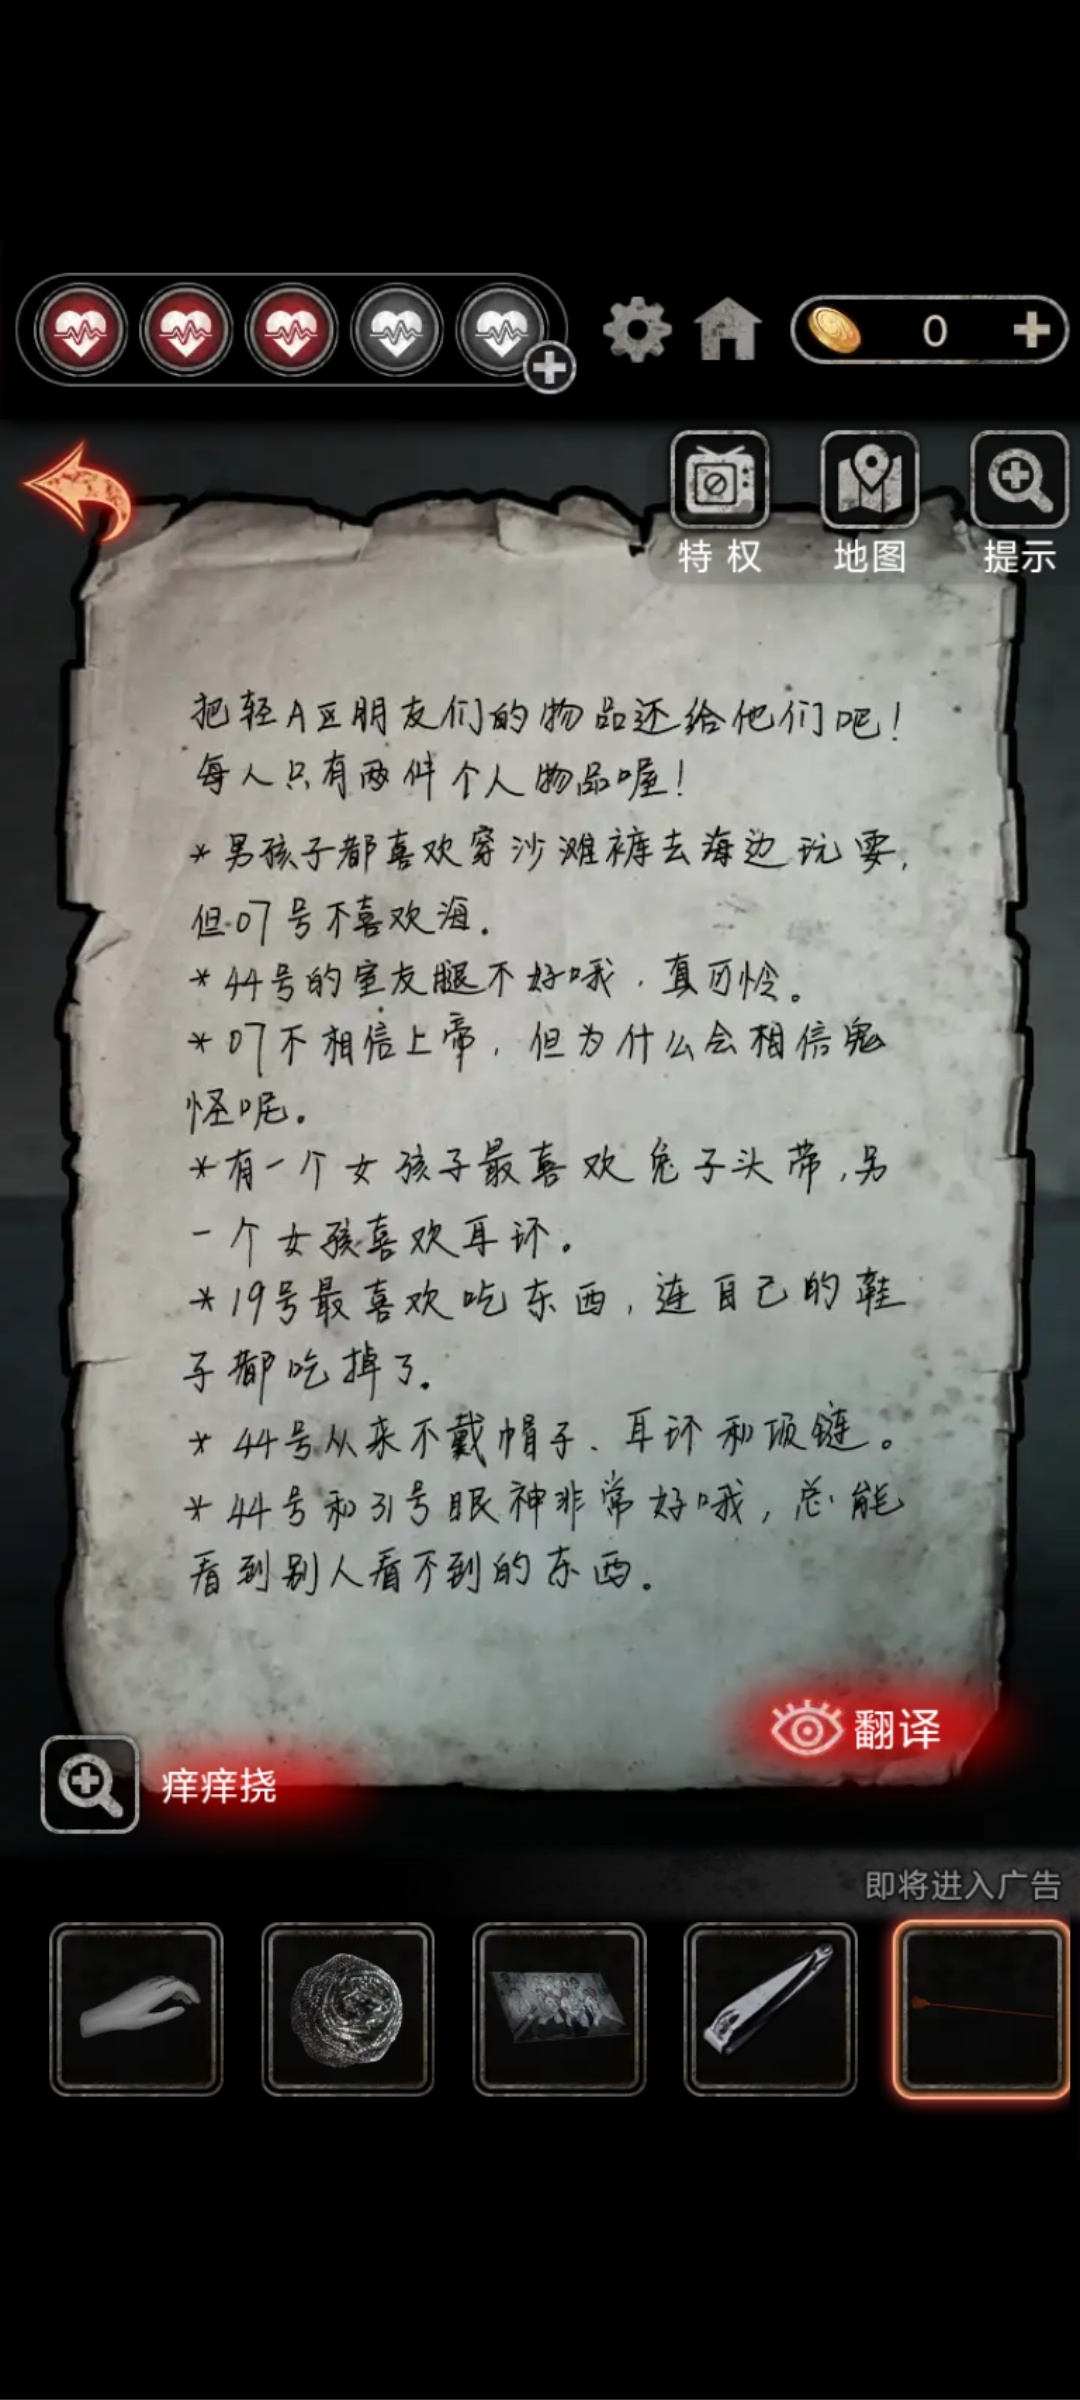 0
特权
地图
提示
把轻A区朋友们的物品还给他们吧！
每人只有两件个人物品喔！
*男孩子都喜欢穿沙滩裤去海边玩耍，
但07号不喜欢海。
*44号的室友腿不好哦，真可怜。
*07不相信上帝，但为什么会相信鬼
怪呢。
*有一个女孩子最喜欢兔子头带，另
一个女孩喜欢耳环。
*19号最喜欢吃东西，连自己的鞋
子都吃掉了。
*44号从来不戴帽子、耳环和项链。
*44号和31号眼神非常好哦，总能
看到别人看不到的东西。
翻译
痒痒挠
即将进入广告